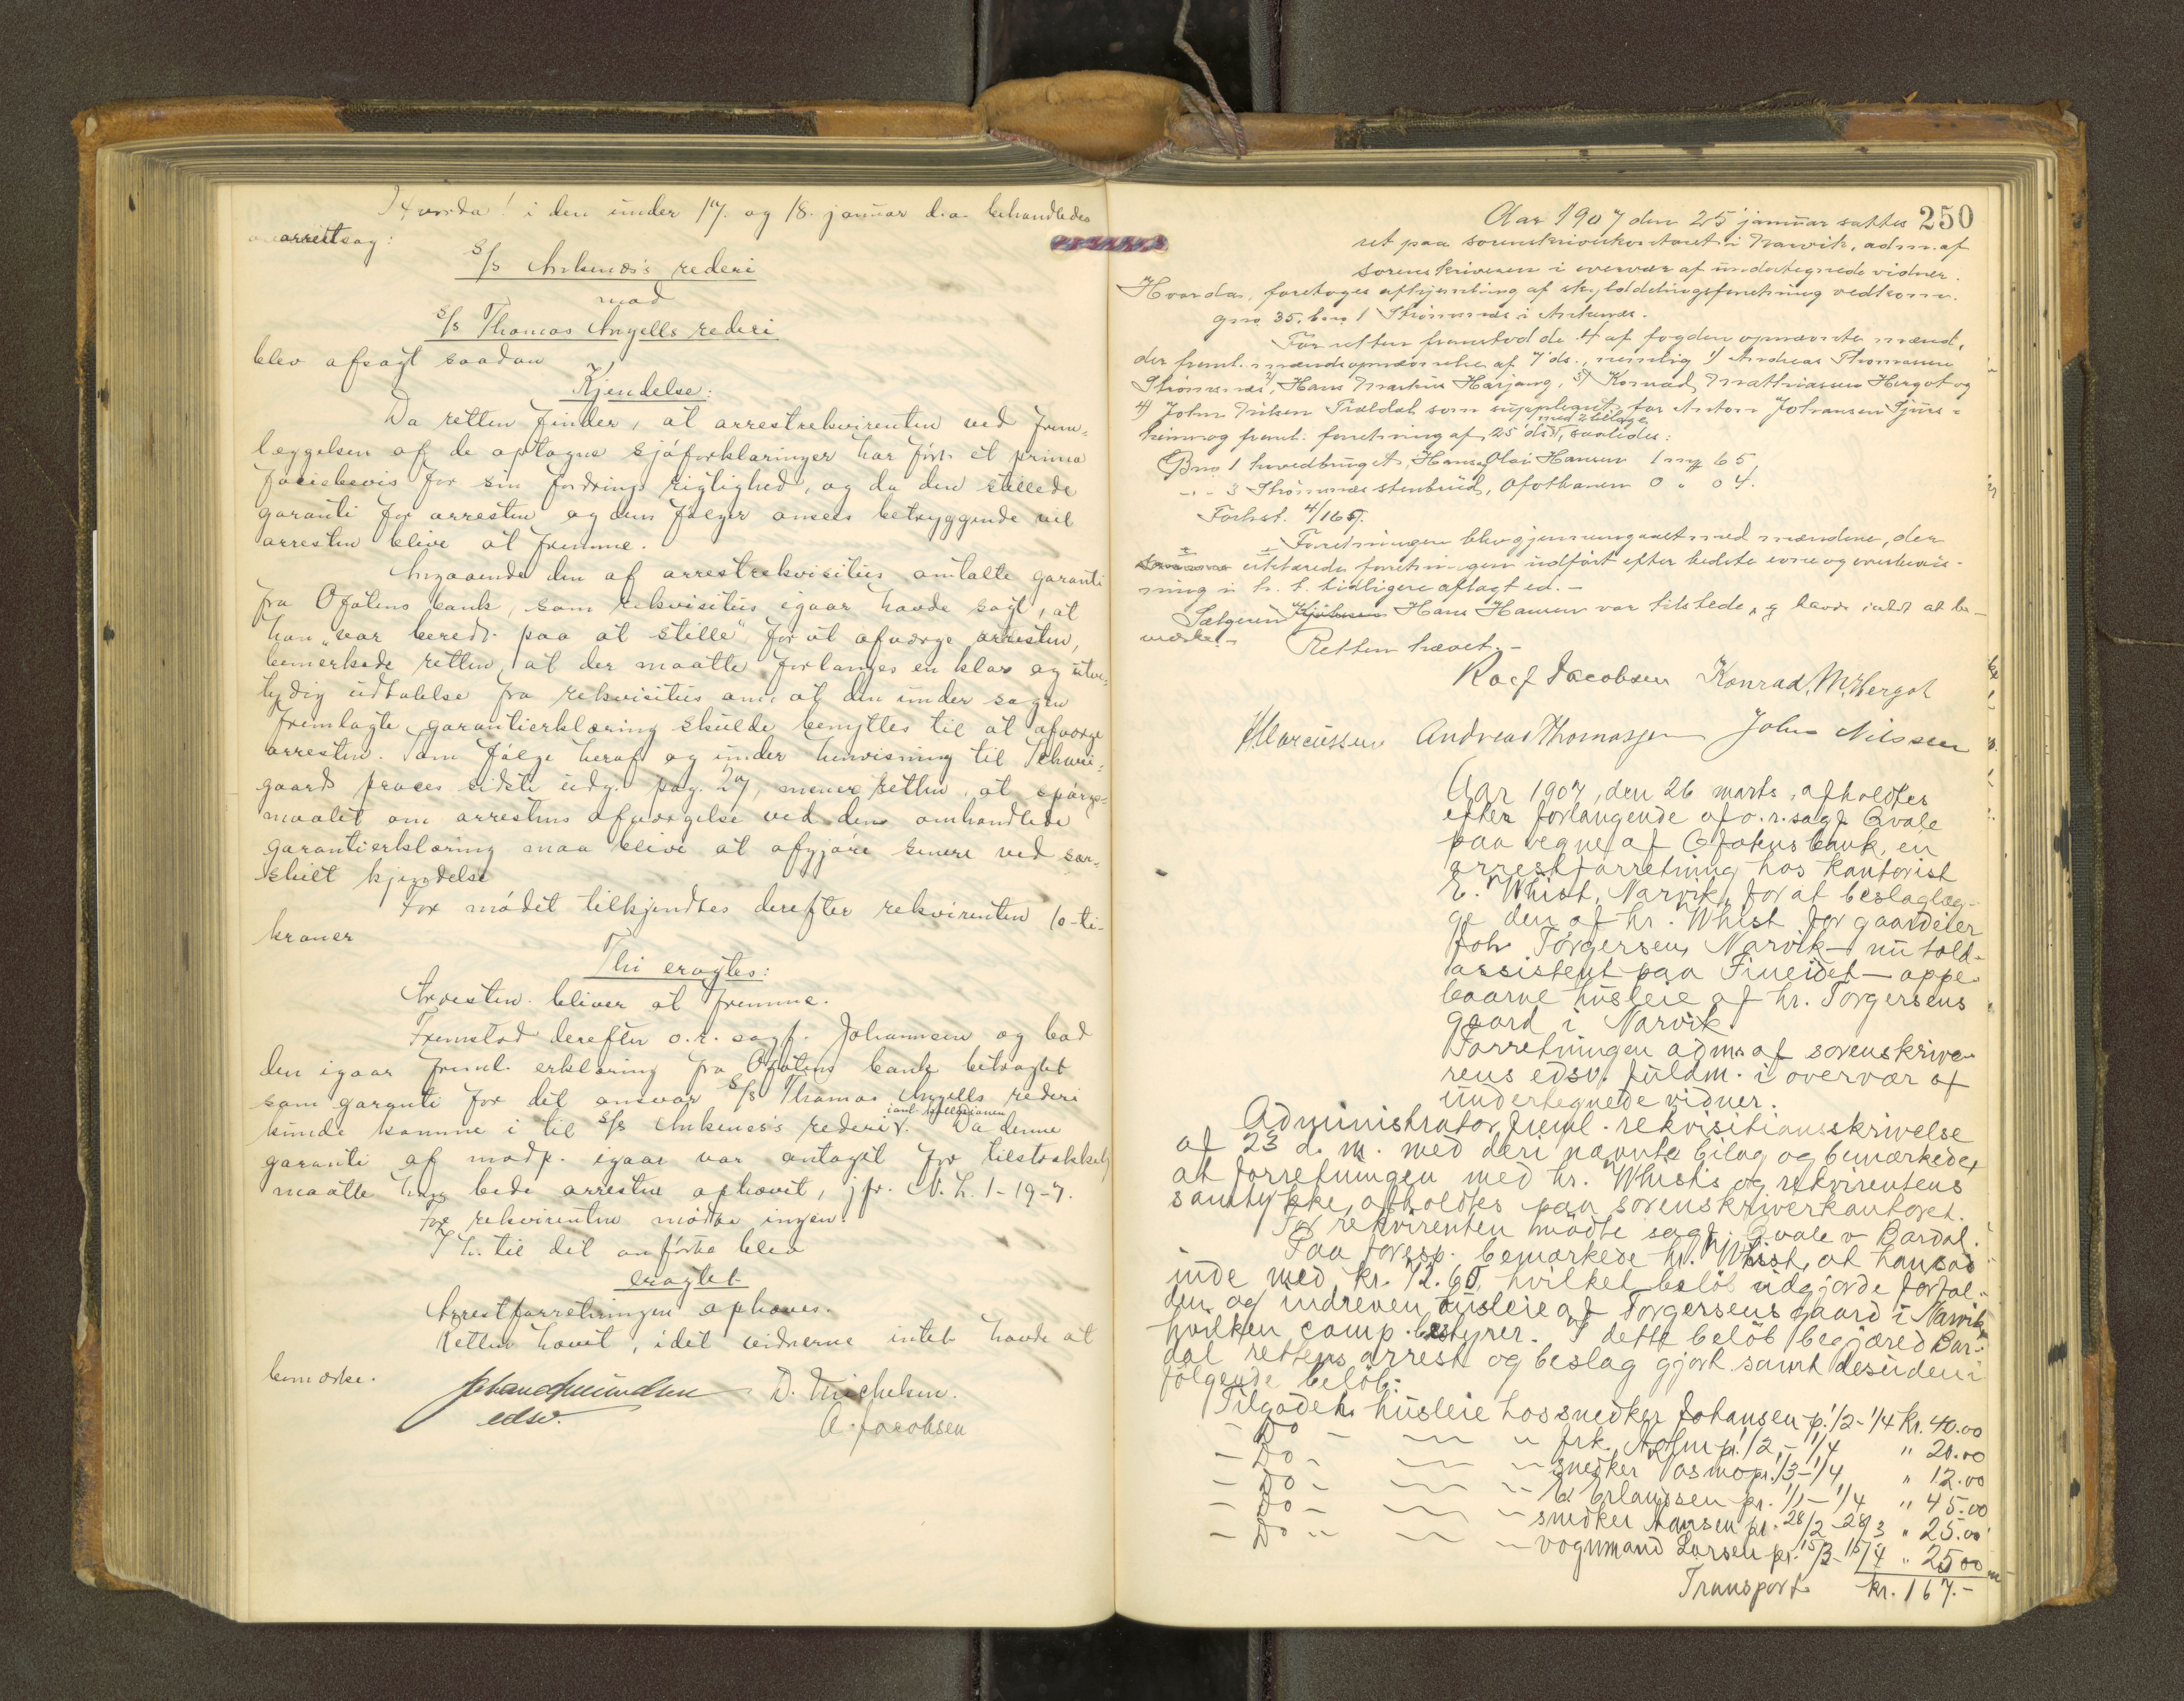 Hvorda! i den under 17. og 18. januar d.a. behandledes
arrestsag:
S/s Ankenæs's rederi
mod
S/s Thomas Angells rederi
blev afsagt saadan
Kjendelse:
Da retten finder, at arrestrekvirenten ved frem-
læggelsen af de optagne sjøforklaringer har ført et prima
faciebevis for sin fordrings rigtighed, og da den stillede
garanti for arresten og dens følger ansees betryggende vil
arresten blive at fremme.
Angaaende den af arrestrekvisitus omtalte garanti
fra Ofotens bank, som rekvisitus igaar havde sagt, at
han "var beredt paa at stille" for at afværge arresten,
bemerkede retten, at der maatte forlanges en klar og utve-
tydig udtalelse fra rekvisitus om, at den under sagen
fremlagte garantierklæring skulde benyttes til at afværge
arresten. Som følge heraf og under henvisning til Schwei-
gaards proces sidste udg. pag. 27, mener retten, at spørgs-
maalet om arrestens afværgelse ved den omhandlede
garantierklæring maa blive at afgjøre senere ved sær-
skilt kjendelse
For mødet tilkjendtes derefter rekvirenten 10-ti-
kroner
Thi eragtes:
Arresten bliver at fremme.
Fremstod derefter o.r. sagf. Johannesen og bad
den igaar freml. erklæring fra Ofotens bank betragtet
som garanti for det ansvar S/s Thomas Angells rederi
kunde komme i til S/s Ankenes's rederi i anl. kollisionen. Da denne
garanti af modp. igaar var antaget for tilstrækkelig
maatte han bede arresten ophævet, jfr. N. L. 1-19-7.
For rekvirenten mødte ingen.
I h. til det anførte blev
eragtet
Arrestforretningen ophæves.
Retten hævet, idet vidnerne intet havde at
bemærke.
edsv.
D. Michelsen.
A. Jacobsen
250
Aar 1907 den 25 januar sattes
ret paa sorenskriverkontoret i Narvik, adm. af
sorenskriveren i overvær af undertegnede vidner.
Hvorda, foretoges afhjemling af skylddelingsforretning vedkom.
gno 35, bno 1 Strømsnes i Ankenes.
For retten fremstod de 4 af fogden opnævnte mænd,
der freml. mændsopnævnelse af 7 ds., nemlig 1) Andreas Thomassen
Strømsnes, 2) Hans Markus Harjang, 3) Konrad Mathiassen Hergot og
4) John Nilsen Trældal som suppleant for Anton Johansen
og freml. forretning af 25 ds med 2 bilage, saaledes:
Bno 1 hovedbruget, Hans Olai Hansen 1 mrk 65
-"- 3 Strømsnes stenbrud, Ofotbanen 0 " 04.
Forhst. 4/165.
Forretningen blev gjennemgaaet med mændene, der
erklærede forretningen udført efter bedste evne og overbevis-
ning i h. t. tidligere aflagt ed.-
Sælgeren Hans Hansen var tilstede og havde intet at be-
mærke.-
Retten hævet.-
Roef Jacobsen Konrad M. Hergot
H Marcussen Andreas Thomassen John Nilssen
Aar 1907, den 26 marts, afholdtes
efter forlangende af o.r.sagf. Qvale
paa vegne af Ofotens bank, en
arrestforretning hos kontorist
E. Whist, Narvik, for at beslaglæg-
ge den af hr. Whist for gaardeier
Joh. Torgersen, Narvik - nu told-
assistent paa Fineidet - oppe-
baarne husleie af hr. Torgersens
gaard i Narvik.
Forretningen adm. af sorenskrive-
rens edsv. fuldm. i overvær af
undertegnede vidner.
Administrator freml. rekvisitionsskrivelse
af 23 d. m. med deri nævnte bilag og bemærkede,
at forretningen med hr. Whists og rekvirentens
samtykke, afholdtes paa sorenskriverkontoret.
For rekvirenten mødte sagf. Qvale v Bardal.
Paa foresp. bemærkede hr. Whist, at han sad
inde med kr. 72.65, hvilket beløb udgjorde forfal-
den og indreven husleie af Torgersens gaard i Narvik,
hvilken comp. bestyrer. I dette beløb begjæred Bar-
dal rettens arrest og beslag gjort samt desuden i
følgende beløb:
Tilgodeh. husleie hos snedker Johansen p. 1/2-1/4 Kr. 40.00
- Do - " frk. Holm pr. 1/2 - 1/4 " 20.00
- Do - " snedker Vosmo pr. 1/3 - 1/4 " 12.00
- Do - " E. Erlandsen pr. 1/1 - 1/4 " 45.00
- Do - " snedker Hansen pr. 28/2 - 28/3 " 25.00
- Do - " vognmand Larsen pr. 15/3 - 15/4 " 25 00
Transport kr. 167.-